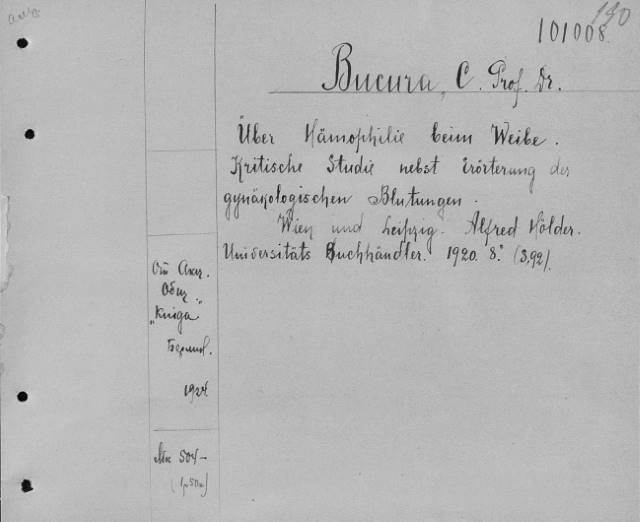 190
101008.
Bucura, C. Prof. Dr.
Über Hämophilie beim Weibe.
Kritische Studie nebst Erörterung der
gynäkologischen Blutungen.
Wien und Leipzig. Alfred Hölder.
Universitäts Buchhändler. 1920. 8.° (3,92).
От Акц.
Общ.
„Книга
Берлин.
1924
Мк 504-